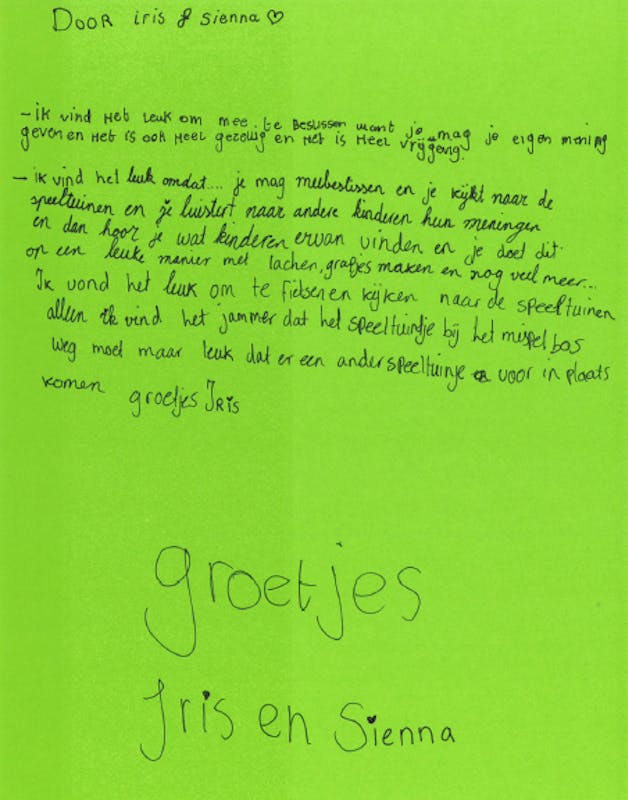 Door iris & Sienna ♡
- ik vind het leuk om mee te beslissen want je mag je eigen mening
geven en het is ook heel gezellig en het is heel vrijgevig.
- ik vind het leuk omdat.... je mag meebeslissen en je kijkt naar de
speeltuinen en je luistert naar andere kinderen hun meningen
en dan hoor je wat kinderen ervan vinden en je doet dit
op een leuke manier met lachen, grapjes maken en nog veel meer...
Ik vond het leuk om te fietsen en kijken naar de speeltuinen
alleen ik vind het jammer dat het speeltuintje bij het mispelbos
weg moet maar leuk dat er een ander speeltuinje voor in plaats
komen groetjes Iris
groetjes
Iris en Sienna